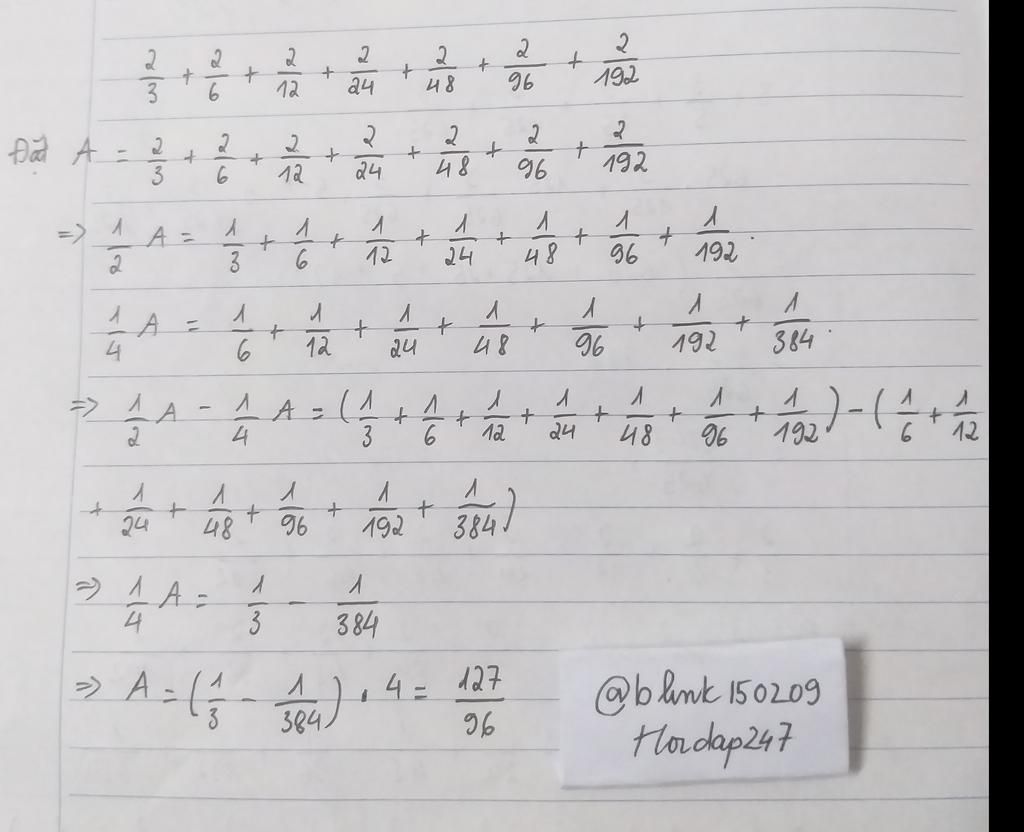 2/3 + 2/6 + 2/12 + 2/24 + 2/48 + 2/96 + 2/192
Đặt A = 2/3 + 2/6 + 2/12 + 2/24 + 2/48 + 2/96 + 2/192
=> 1/2 A = 1/3 + 1/6 + 1/12 + 1/24 + 1/48 + 1/96 + 1/192.
1/4 A = 1/6 + 1/12 + 1/24 + 1/48 + 1/96 + 1/192 + 1/384.
=> 1/2 A - 1/4 A = (1/3 + 1/6 + 1/12 + 1/24 + 1/48 + 1/96 + 1/192) - (1/6 + 1/12
+ 1/24 + 1/48 + 1/96 + 1/192 + 1/384)
=> 1/4 A = 1/3 - 1/384
=> A = (1/3 - 1/384) . 4 = 127/96
@blink150209
Hoidap247